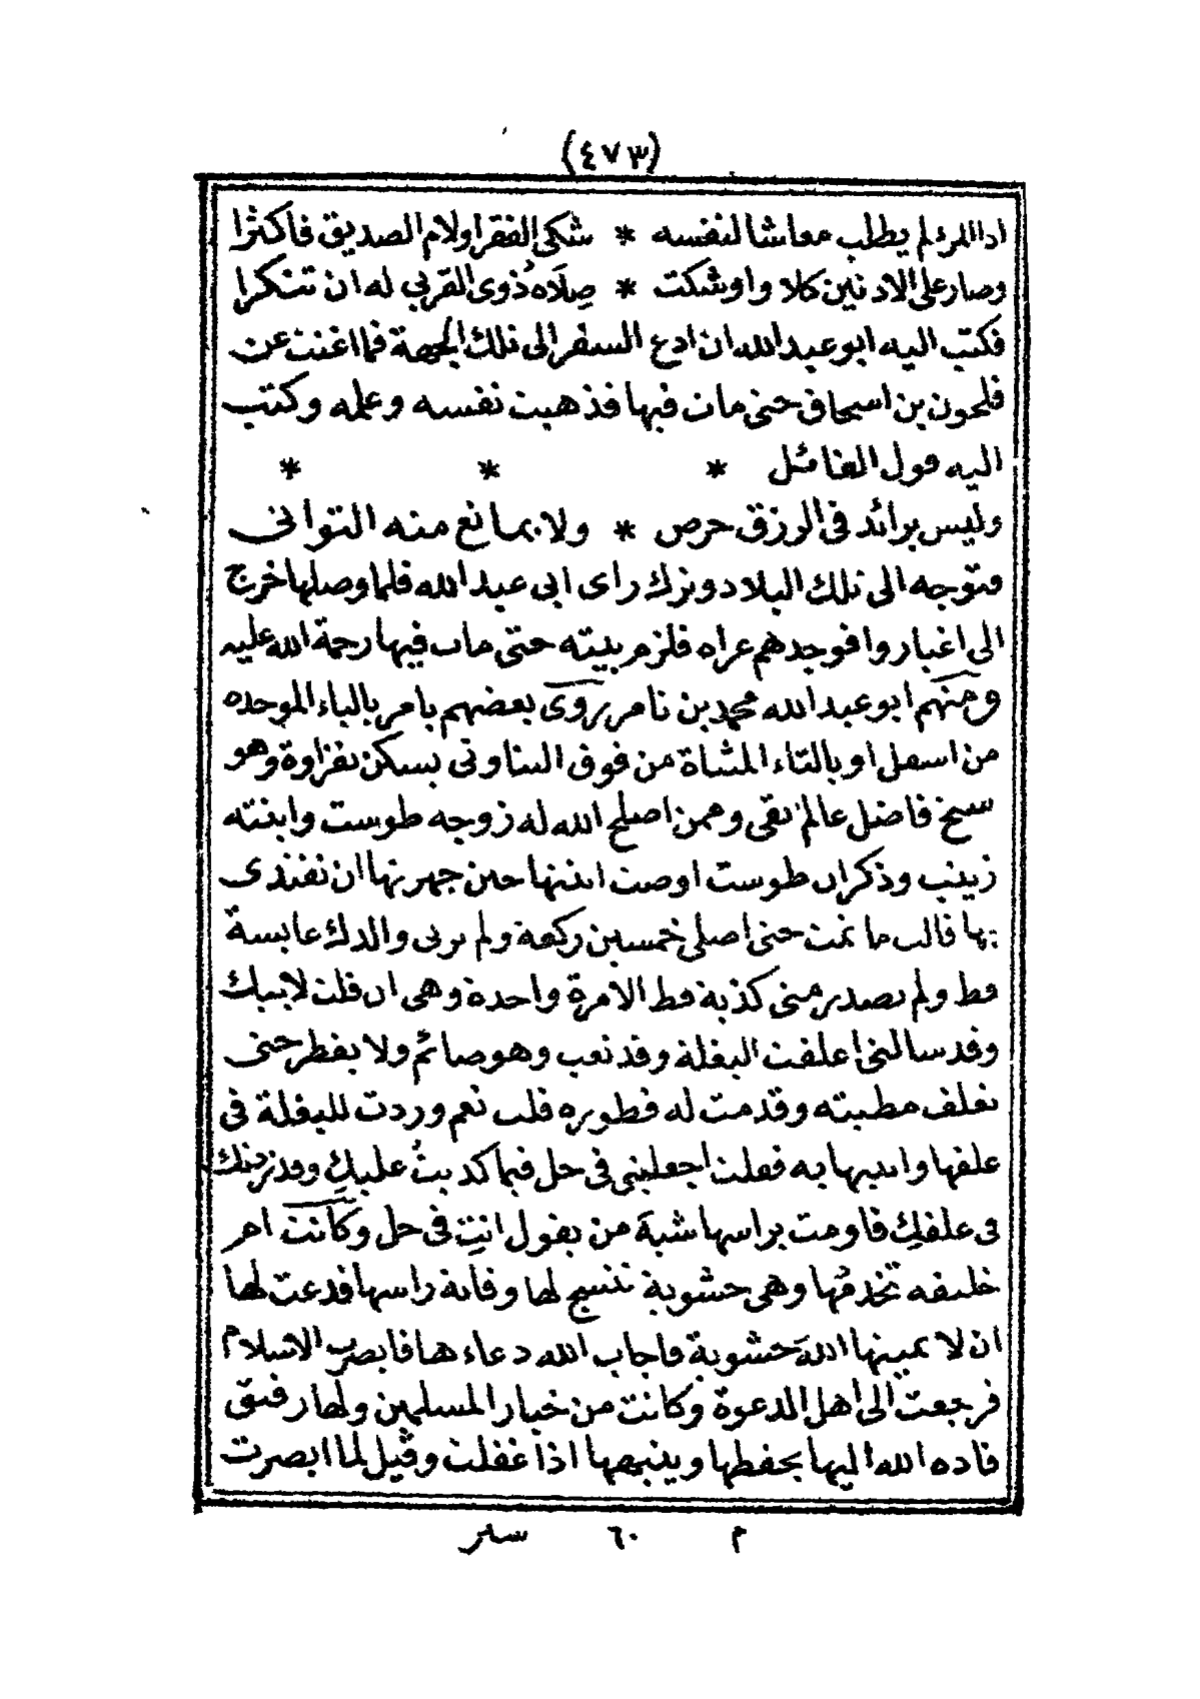 (٤٧٣)
اذا المرء لم يطلب معاشا لنفسه * شكى الفقر او لام الصديق فاكثرا
وصار على الادنين كلا واوشكت * صِلَاه ذُوى القربى له ان تتنكرا
فكتب اليه ابو عبد الله ان ادع السفر الى تلك الجهة فما اغنت عن
فلحون بن اسحاق حتى مات فيها فذهبت نفسه وعلمه وكتب
اليه قول القائل * * *
وليس بزائد فى الرزق حرص * ولا بمانع منه التوانى
فتوجه الى تلك البلاد وترك راى ابى عبد الله فلما وصلها خرج
الى اغياروا فوجدهم عراه فلزم بيته حتى مات فيها رحمة الله عليه
ومنهم ابو عبد الله محمد بن تامر يروى بعضهم يامر بالياء الموحده
من اسفل او بالتاء المثناة من فوق التناوتى يسكن نفزاوة وهو
شيخ فاضل عالم تقى وممن اصلح الله له زوجه طوست وابنته
زينب وذكر ان طوست اوصت ابنتها حين جهرتها ان تقتدى
بها قالت ما نمت حتى اصلى خمسين ركعة ولم يرنى والدك عابسة
قط ولم تصدر منى كذبة قط الا مرة واحدة وهى ان قلت لابيك
وقد سالنى اعلفت البغلة وقد تعب وهو صائم ولا يفطر حتى
تعلف مطيته وقدمت له فطوره قلت نعم وردت للبغلة فى
علفها واتيتها به فقلت اجعلينى فى حل فيما كذبتُ عليكِ وقد زدتك
فى علفكِ فاومت براسها شبهَ من يقول انتِ فى حل وكانت امر
خليفه تخدمُها وهى حشوية تنسج لها وقاية راسها فدعت لها
ان لا يميتها اللهَ حشوية فاجاب الله دعاءها فابصرت الاسلام
فرجعت الى اهل الدعوة وكانت من خيار المسلمين ولها رفيق
قاده الله اليها يحفظها وينبهها اذا غفلت وقيل لما ابصرت
م ٦٠ سير